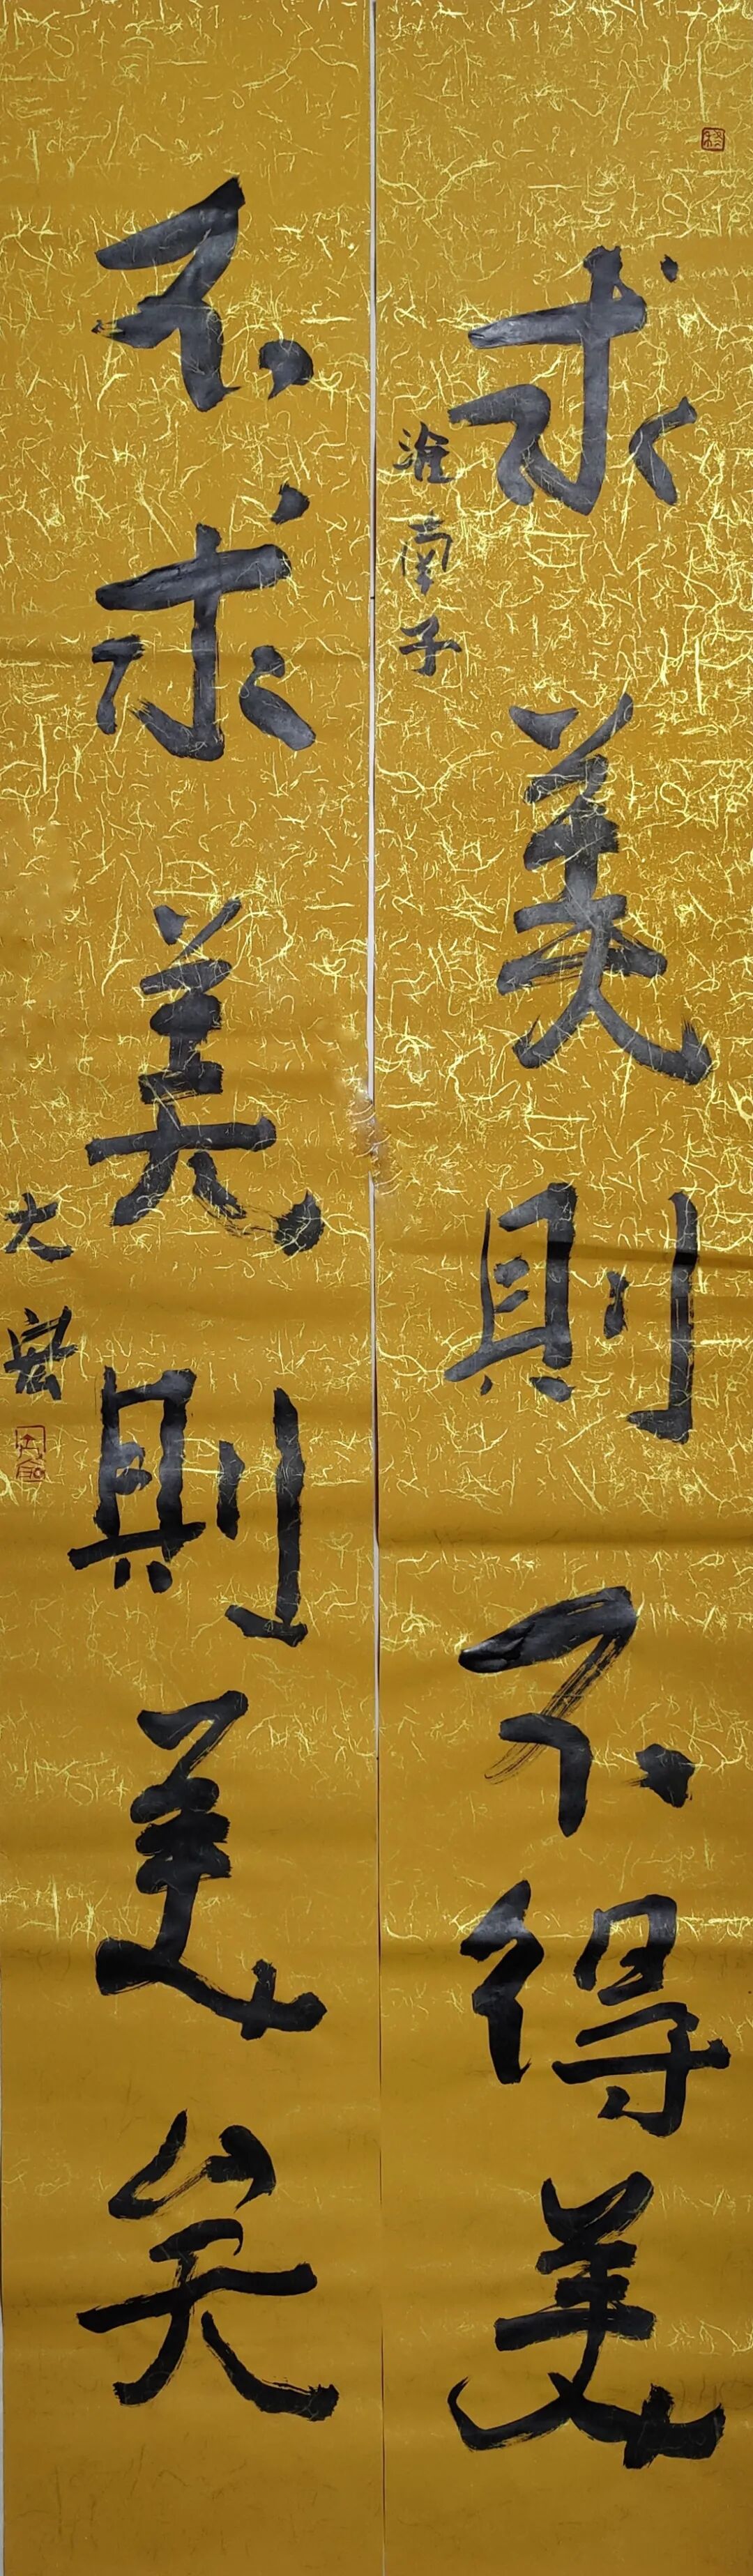 求美則不得美
淮南子
不求美則美矣
大